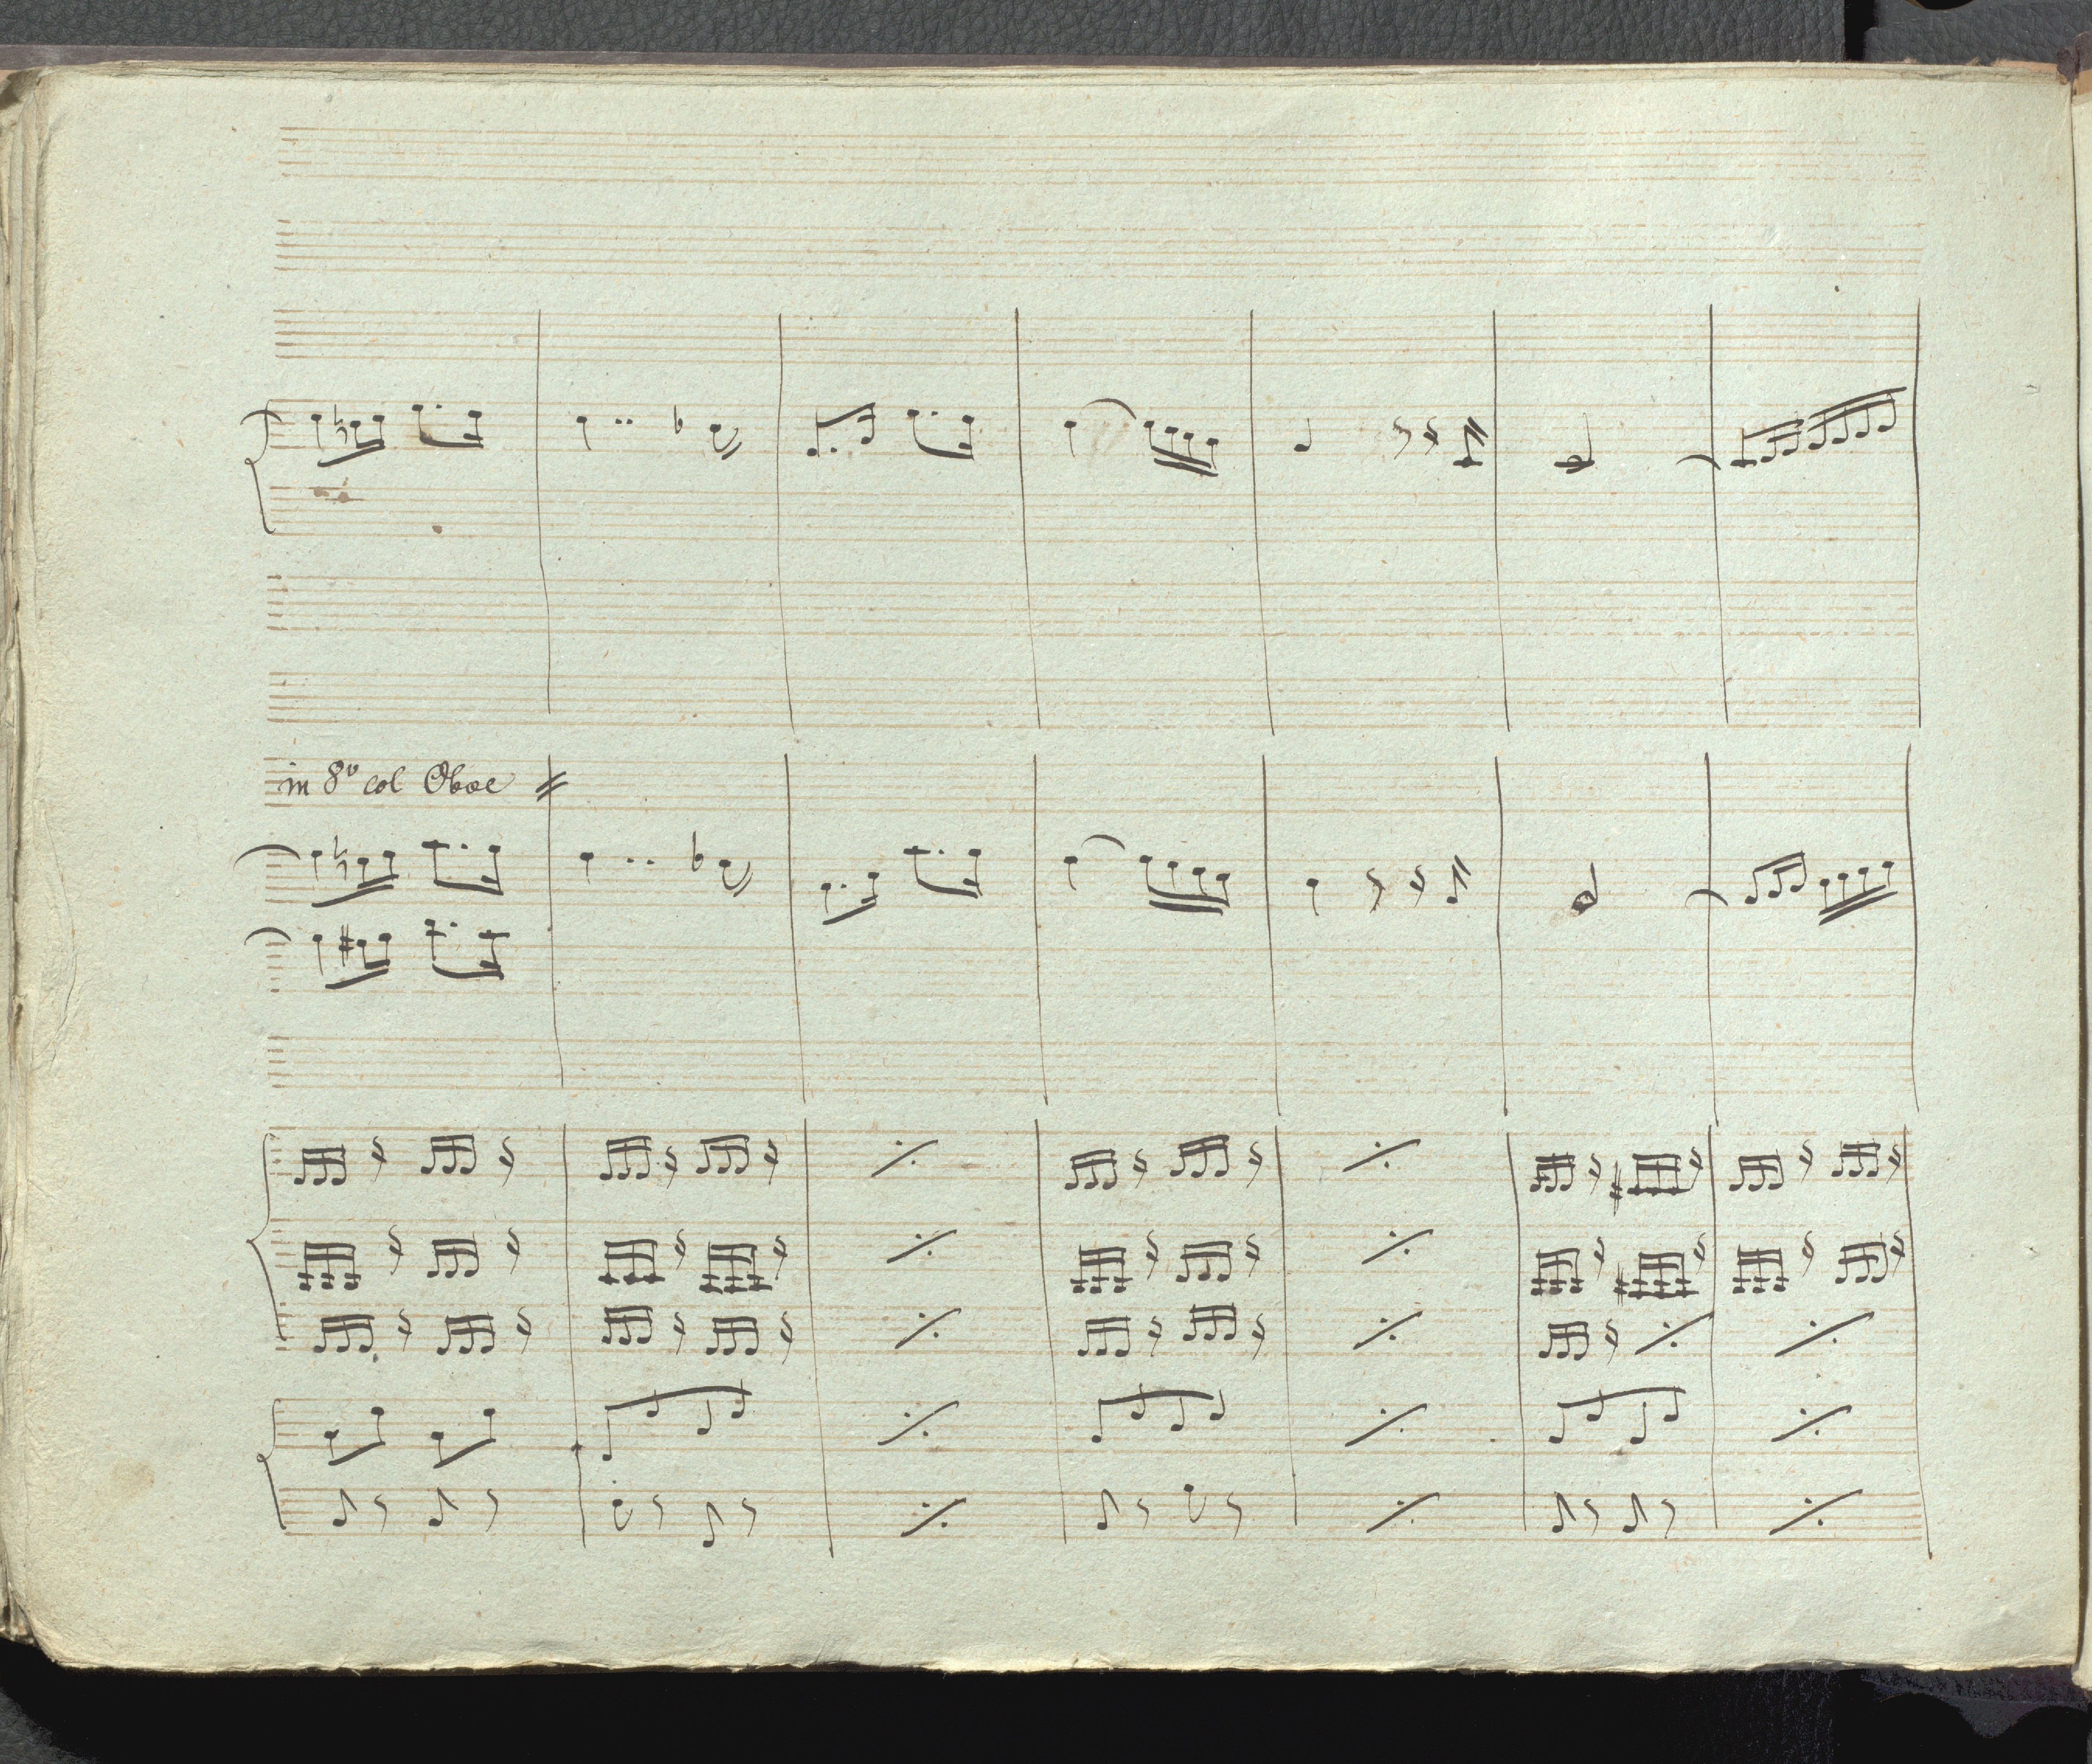 in 8v col Oboe